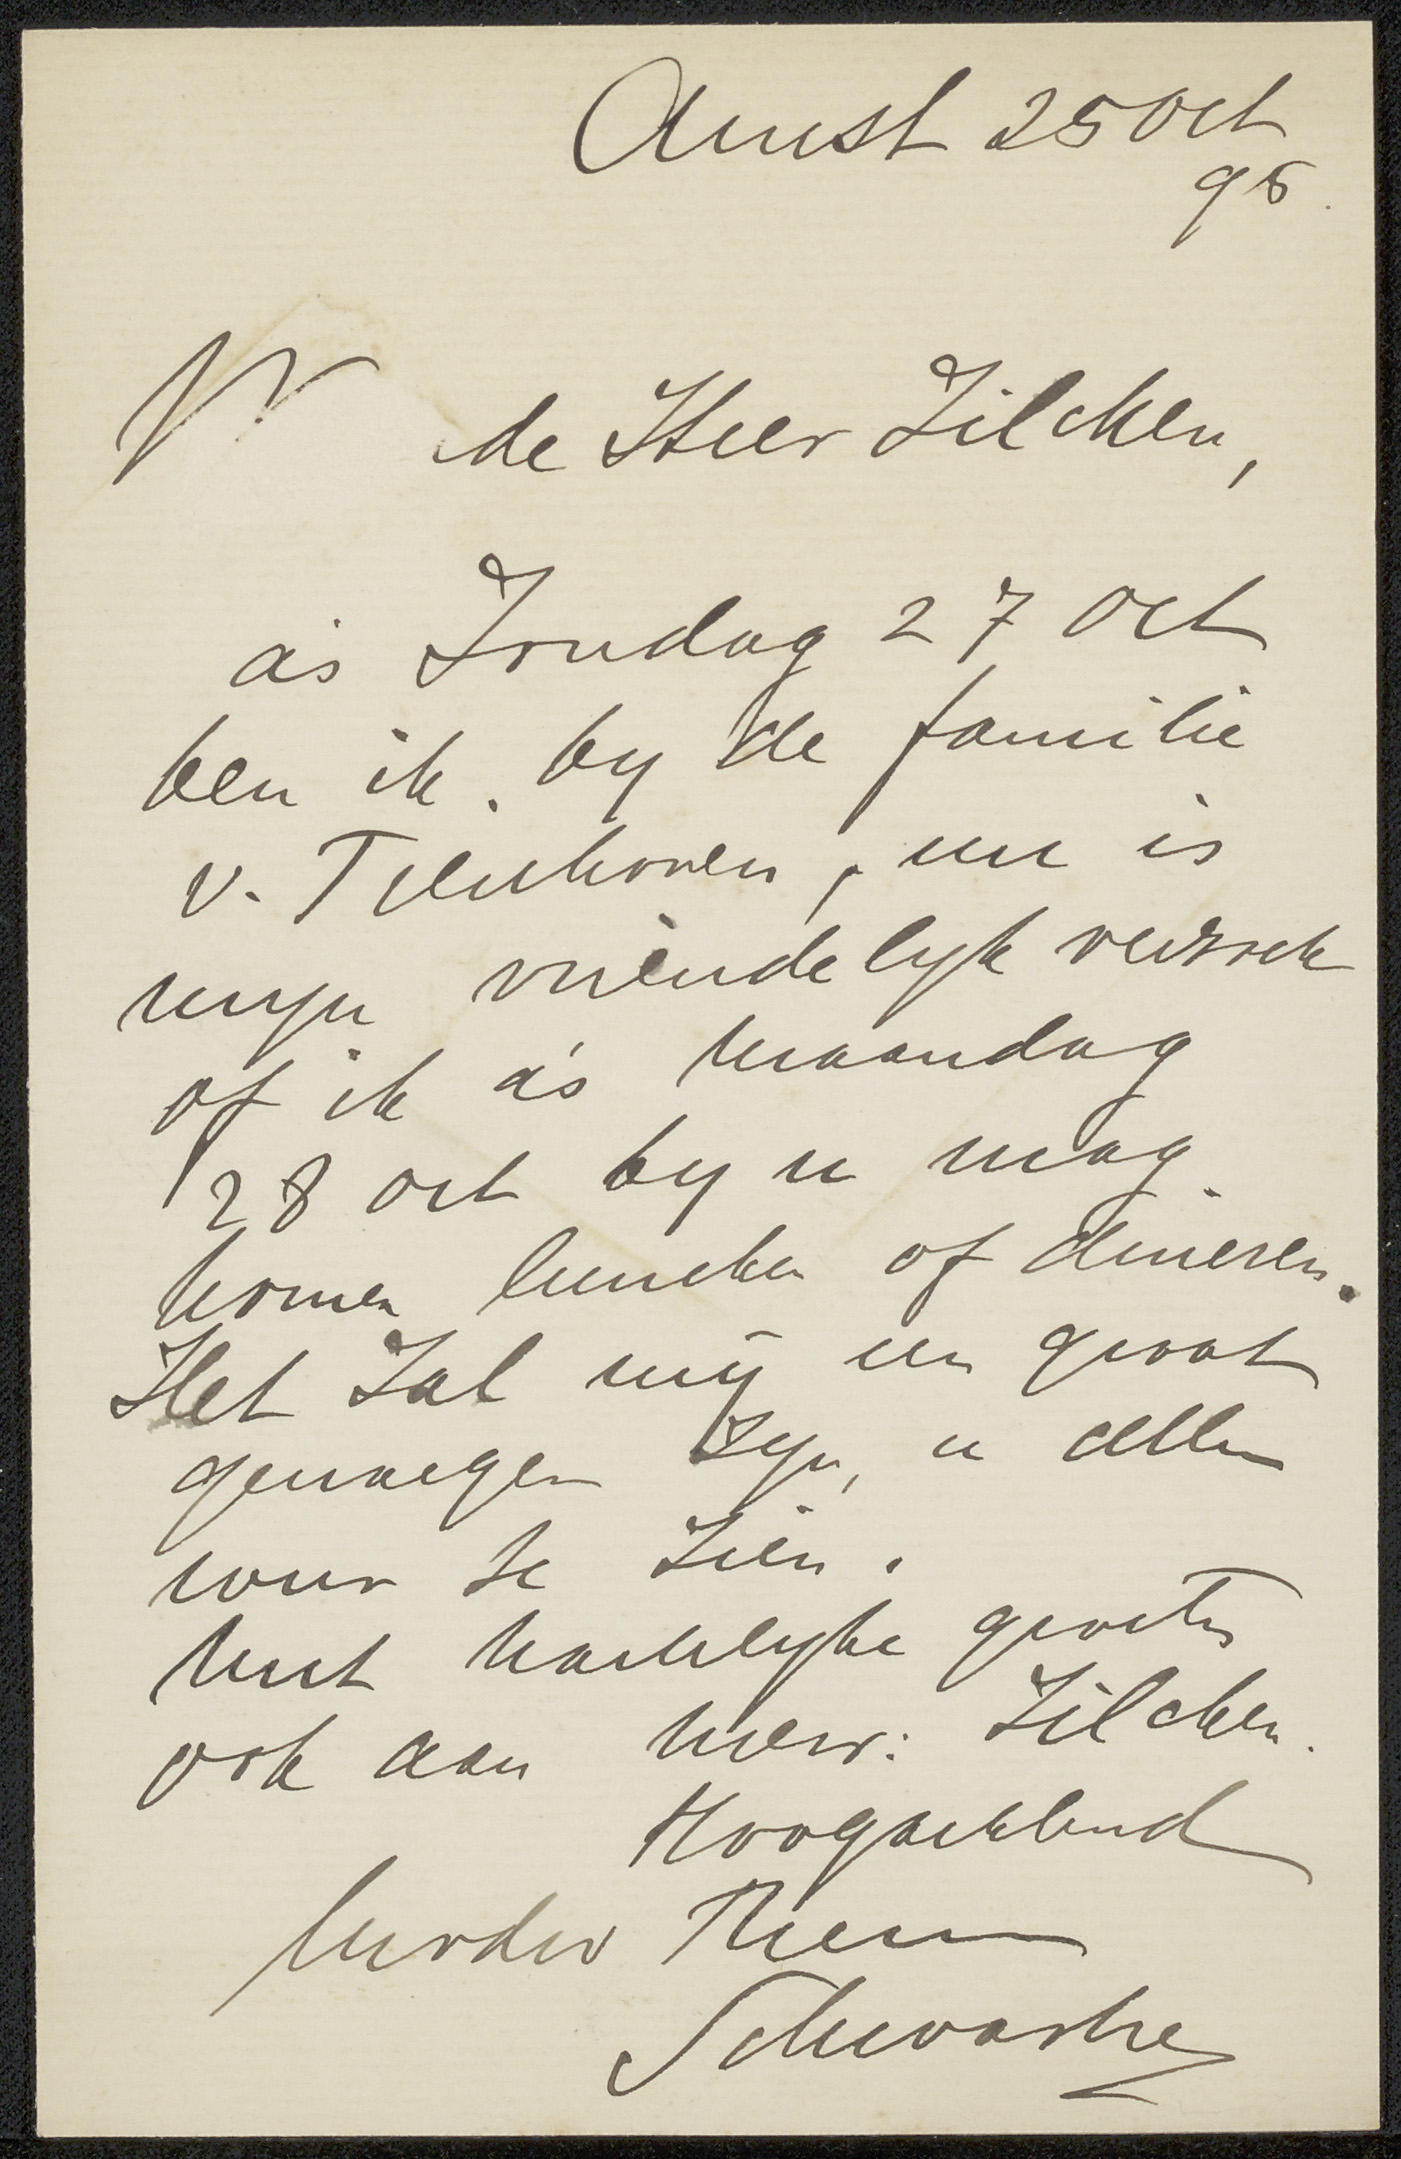 Amst 25 Oct
95.
W de Heer Zilcken,
as Zondag 27 Oct
ben ik. by de familie
v. Tienhoven, nu is
myn vriendelyk verzoek
of ik a's maandag
28 Oct by u mag
komen lunchen of dineren.
Het Zal mij een groot
genoegen zyn, u allen
weer te zien.
Met hartelyke groeten
ook aan Mevr: Zilcken.
Hoogachtend
Therese
Schwartze